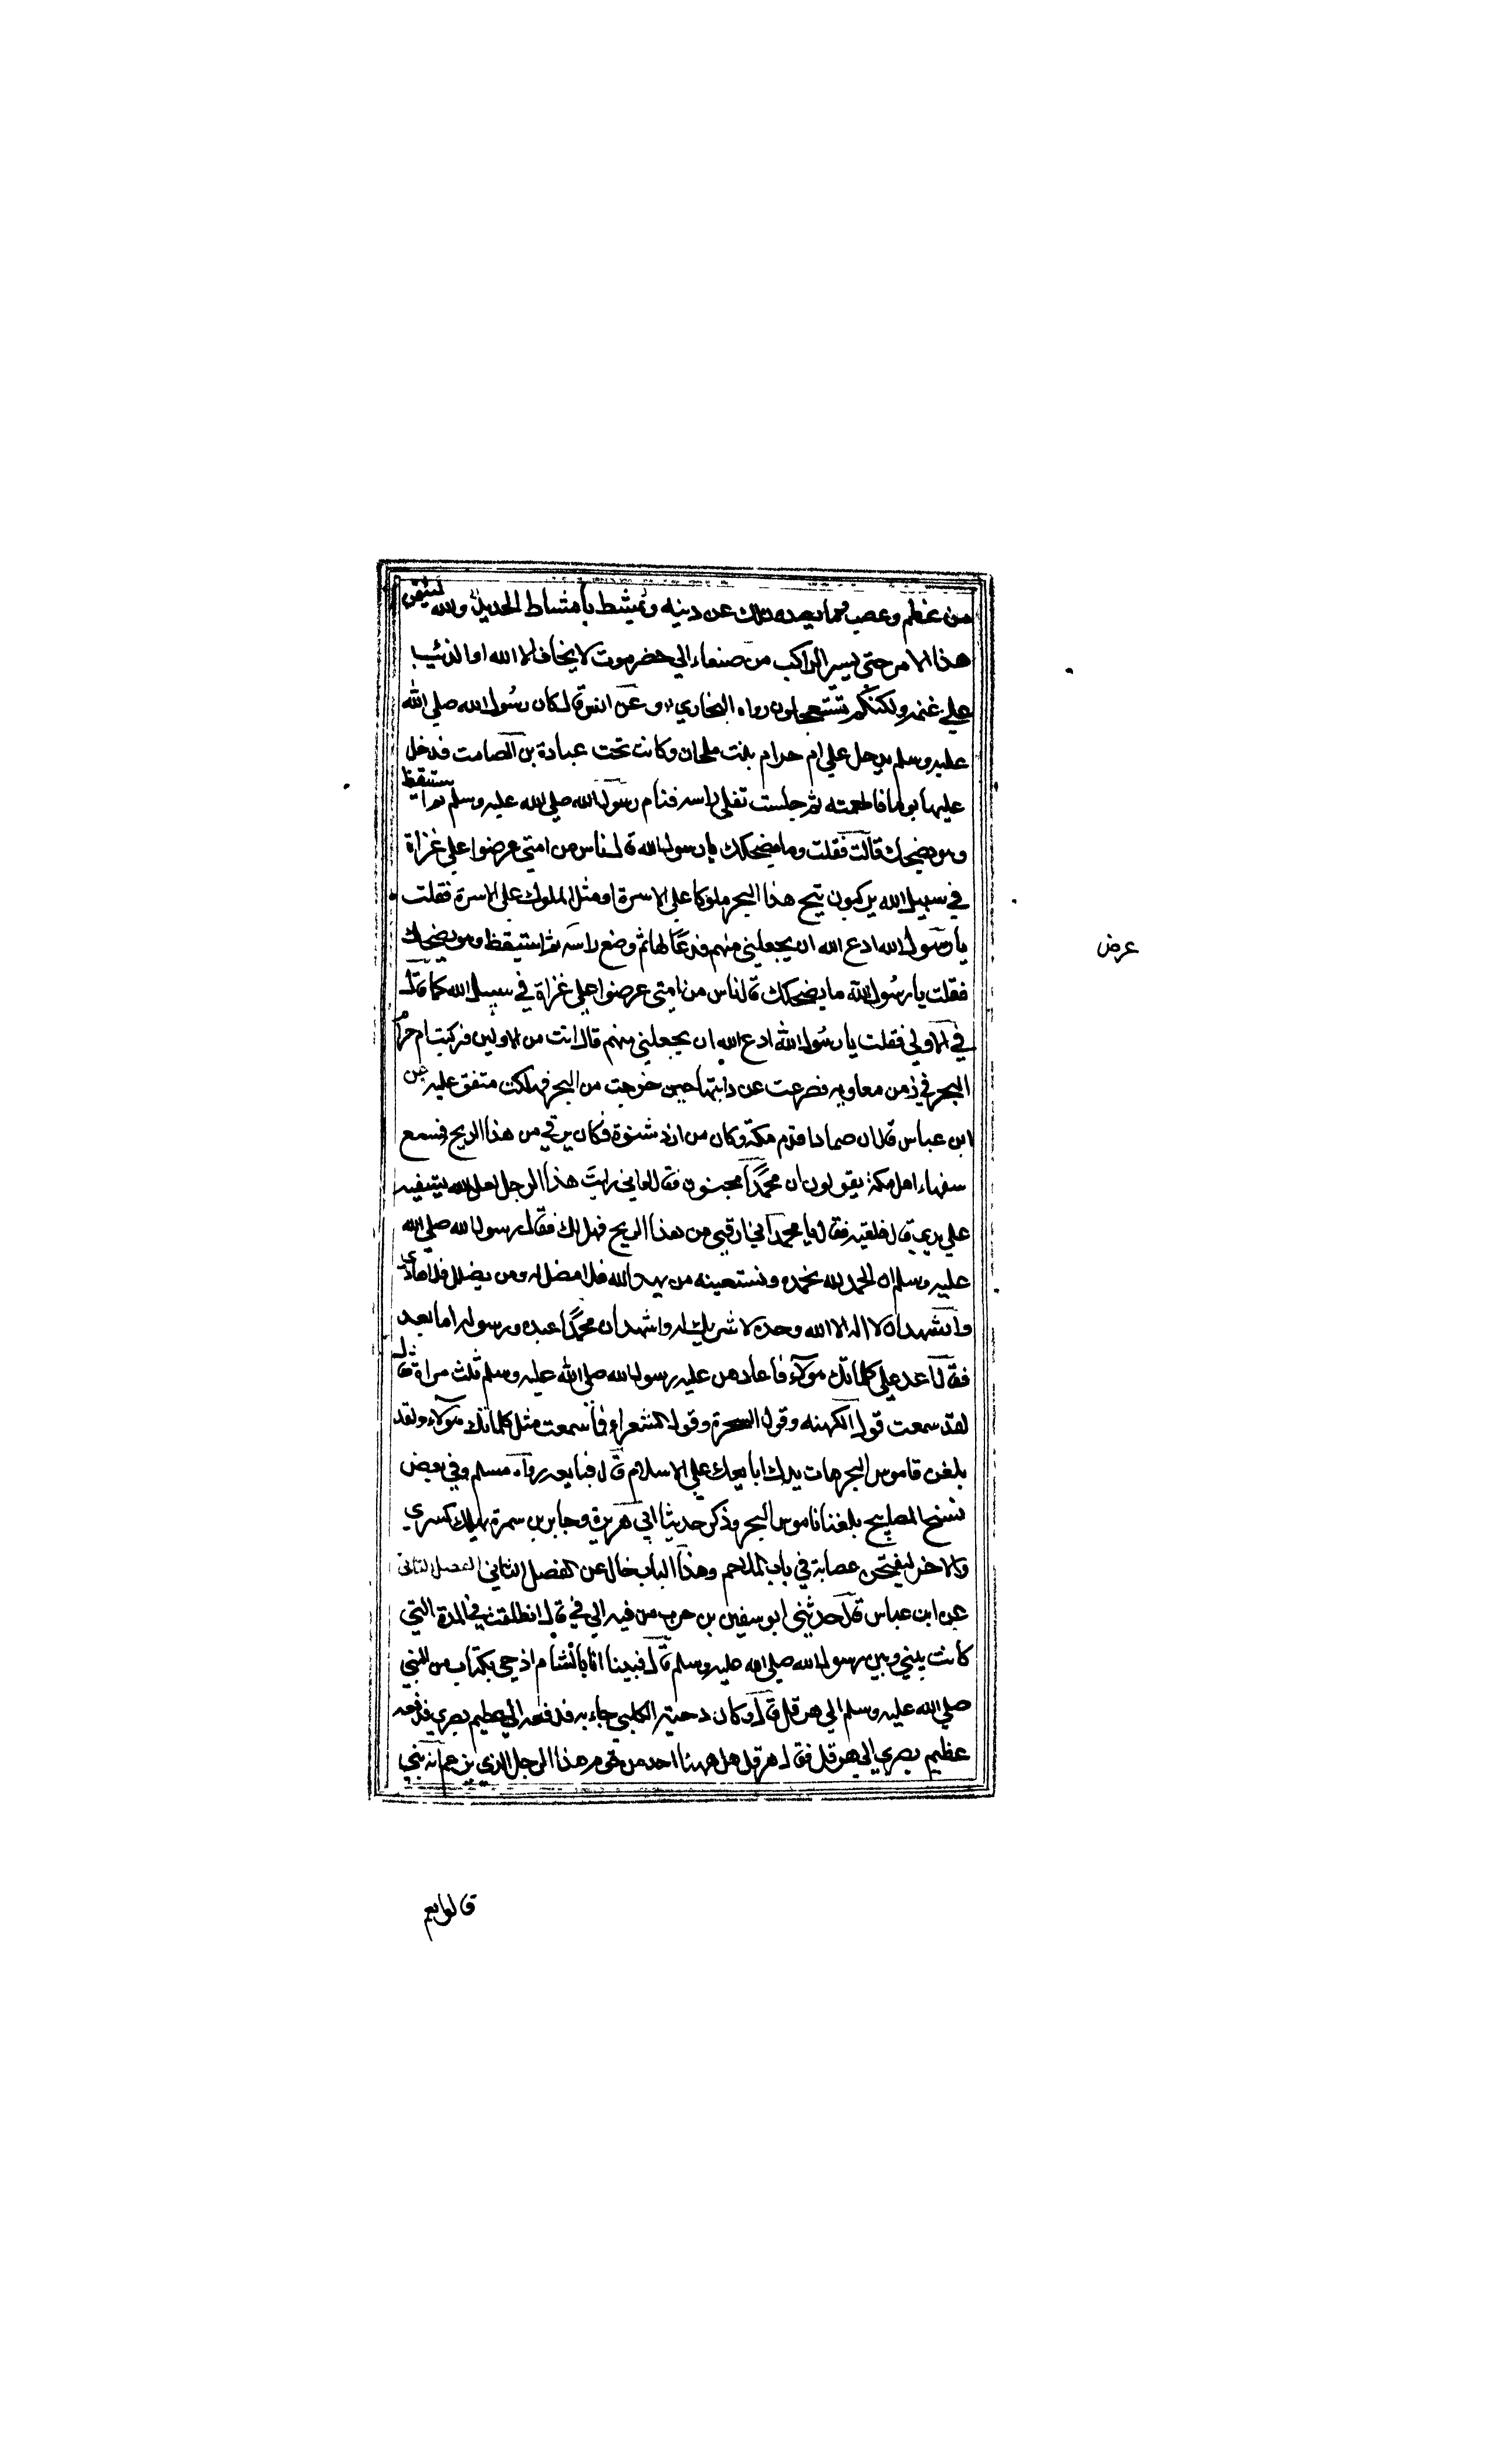 من عظم وعصب فما يصده ذلك عن دينه ويمشط بأمشاط الحديد والله ليتمن
هذا الامر حتى يسير الراكب من صنعاء الي حضرموت لا يخاف الا الله او الذئب
علي غنمه ولكنكم تستعجلون رواه البخاري وعن انس قال كان رسول الله صلي الله
عليه وسلم يدخل علي ام حرام بنت ملحان وكانت تحت عبادة بن الصامت فدخل
عليها يوما فاطعمته ثم جلست تفلي راسه فنام رسول الله صلي الله عليه وسلم ثم استيقظ
وهو يضحك قالت فقلت وما يضحكك يا رسول الله قال ناس من امتي عرضوا علي غزاة
في سبيل الله يركبون ثبج هذا البحر ملوكا علي الاسرة او مثل الملوك علي الاسرة فقلت
يا رسول الله ادع الله ان يجعلني منهم فدعا لها ثم وضع راسه ثم استيقظ وهو يضحك
عرض
فقلت يا رسول الله ما يضحكك قال ناس من امتي عرضوا علي غزاة في سبيل الله كما قال
في الاولي فقلت يا رسول الله ادع الله ان يجعلني منهم قال انت من الاولين فركبت ام حرام
البحر في زمن معاويه فصرعت عن دابتها حين خرجت من البحر فهلكت متفق عليه عن
ابن عباس قال ان ضمادا قدم مكة وكان من ازد شنوة فكان يرقي من هذا الريح فسمع
سفهاء اهل مكة يقولون ان محمدا مجنون فقال لو اني رايت هذا الرجل لعل الله يشفيه
علي يدي قال فلقيه فقال يا محمد اني ارقي من هذا الريح فهل لك فقال رسول الله صلي الله
عليه وسلم ان الحمد لله نحمده ونستعينه من يهده الله فلا مضل له ومن يضلل فلا هادي
واشهد ان لا اله الا الله وحده لا شريك له واشهد ان محمدا عبده ورسوله اما بعد
فقال اعد علي كلماتك هؤلاء فاعادهن عليه رسول الله صلي الله عليه وسلم ثلث مراة فقال
لقد سمعت قول الكهنه وقول السحرة وقول الشعراء فما سمعت مثل كلماتك هؤلاء ولقد
بلغن قاموس البحر هات يدك ابايعك علي الاسلام قال فبايعه رواه مسلم وفي بعض
نسخ المصابيح بلغنا ناموس البحر وذكر حديثا ابي هريرة وجابر بن سمرة يهلك كسري
والاخر ليفتحن عصابة في باب الملاحم وهذا الباب خال عن الفصل الثاني الفصل الثالث
عن ابن عباس قال حدثني ابو سفين بن حرب من فيه الي في قال انطلقت في المدة التي
كانت بيني وبين رسول الله صلي الله عليه وسلم قال فبينا انا بالشام اذ جئ بكتاب من النبي
صلي الله عليه وسلم الي هرقل قال وكان دحية الكلبي جاء به فدفعه الي عظيم بصري فدفعه
عظيم بصري الي هرقل فقال هرقل هل ههنا احد من قوم هذا الرجل الذي يزعم انه نبي
قالوا نعم